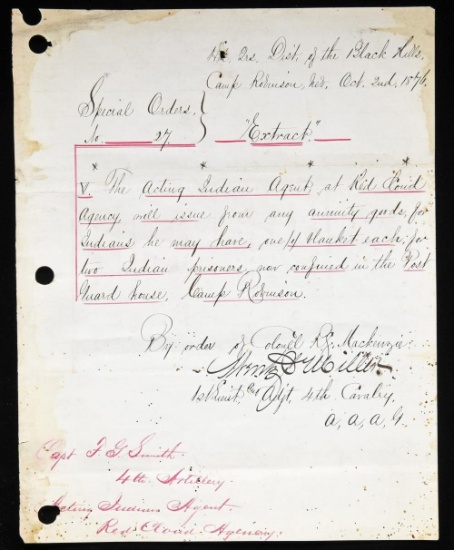 Hd. Qrs. Dist. of the Black Hills.
Camp Robinson, Neb. Oct. 2nd, 1876.
Special Orders
No. 27.
"Extract."
* * *
V. The Acting Indian Agent, at Red Cloud
Agency will issue from any annuity goods, for
Indians he may have, one/1 blanket each, for
two Indian prisoners, now confined in the Post
Guard house, Camp Robinson.
By order of Colonel R.S. Mackenzie.
1st Lieut. & Adjt. 4th Cavalry.
A. A. A. G.
Capt F G Smith
4th Artillery
Acting Indian Agent.
Red Cloud Agency.